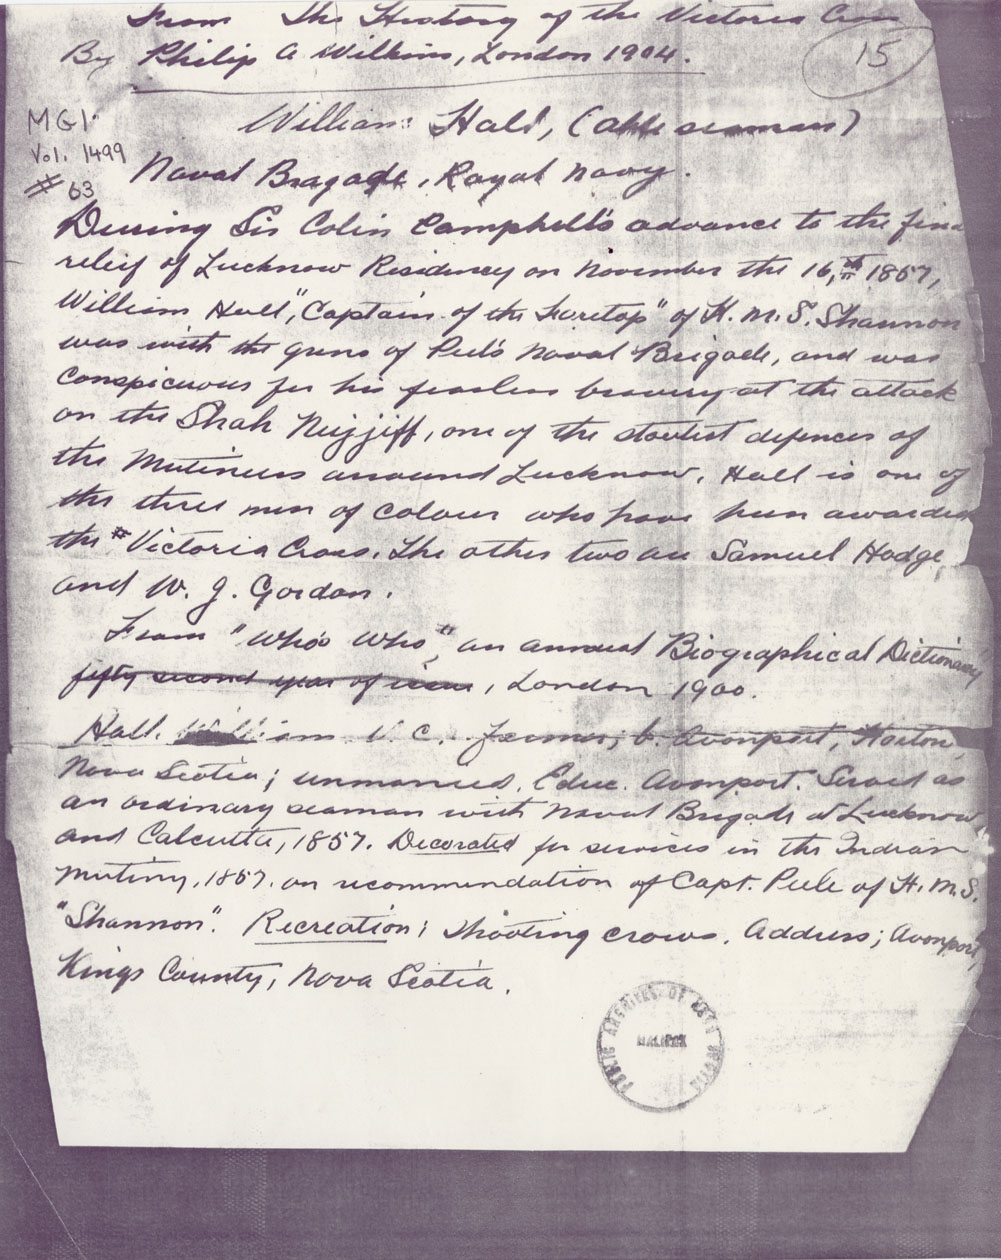 From The History of the Victoria Cross
By Philip A Wilkins, London 1904.
15
MG1.
Vol. 1499
# 63
William Hall, (able seaman)
Naval Bragade, Royal Navy.
During Sir Colin Campbell's advance to the final
relief of Lucknow Residency on November the 16,th 1857,
William Hall, "Captain of the Foretop" of H. M. S. Shannon
was with the guns of Peel's Naval Brigade, and was
conspicuous for his fearless bravery at the attack
on the Shah Nujjiff, one of the stoutest defences of
the Mutineers around Lucknow. Hall is one of
the three men of colour who have been awarded
the Victoria Cross. The other two are Samuel Hodge,
and W. J. Gordon.
From "Who's Who", an annual Biographical Dictionary
fifty second year of issue, London 1900.
Hall. William V. C. Farmer; b. Avonport, Horton,
Nova Scotia; unmarried. Educ. Avonport. Served as
an ordinary seaman with Naval Brigade at Lucknow
and Calcutta, 1857. Decorated for services in the Indian
Mutiny, 1857. on recommendation of Capt. Peele of H. M. S.
"Shannon". Recreation; shooting crows. Address; Avonport,
Kings County, Nova Scotia.
PUBLIC ARCHIVES OF NOVA SCOTIA
HALIFAX